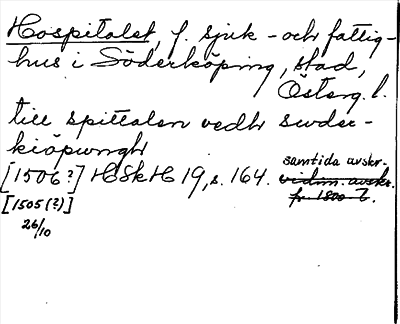 Hospitalet, f. sjuk- och fattig-
hus i Söderköping, stad,
Österg. l.
till spittalen vedhr swder-
kiöpungh
[1506?] HSkH 19, s. 164. samtida avskr.
vidim. avskr.
fr. 1800-t.
[1505(?)]
26/10